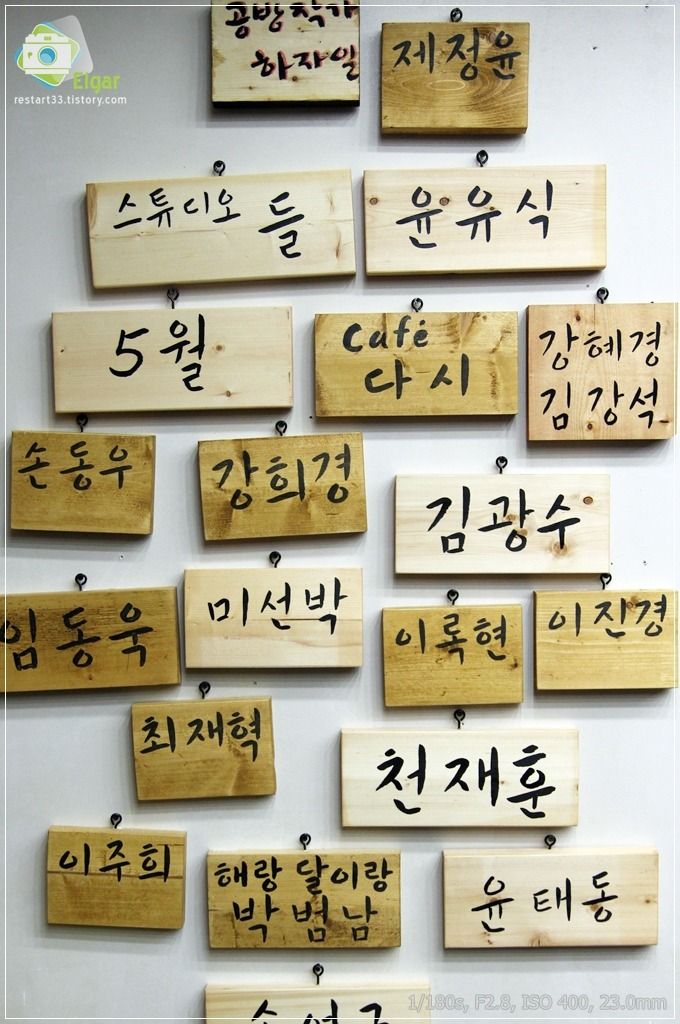 Elgar
restart33.tistory.com
공방작가
하자일
제정윤
스튜디오 들
윤유식
5월
Café
다시
강혜경
김강석
손동우
강희경
김광수
임동욱
미선박
이록현
이진경
최재혁
천재훈
이주희
해랑 달이랑
박범남
윤태동
1/180s, F2.8, ISO 400, 23.0mm